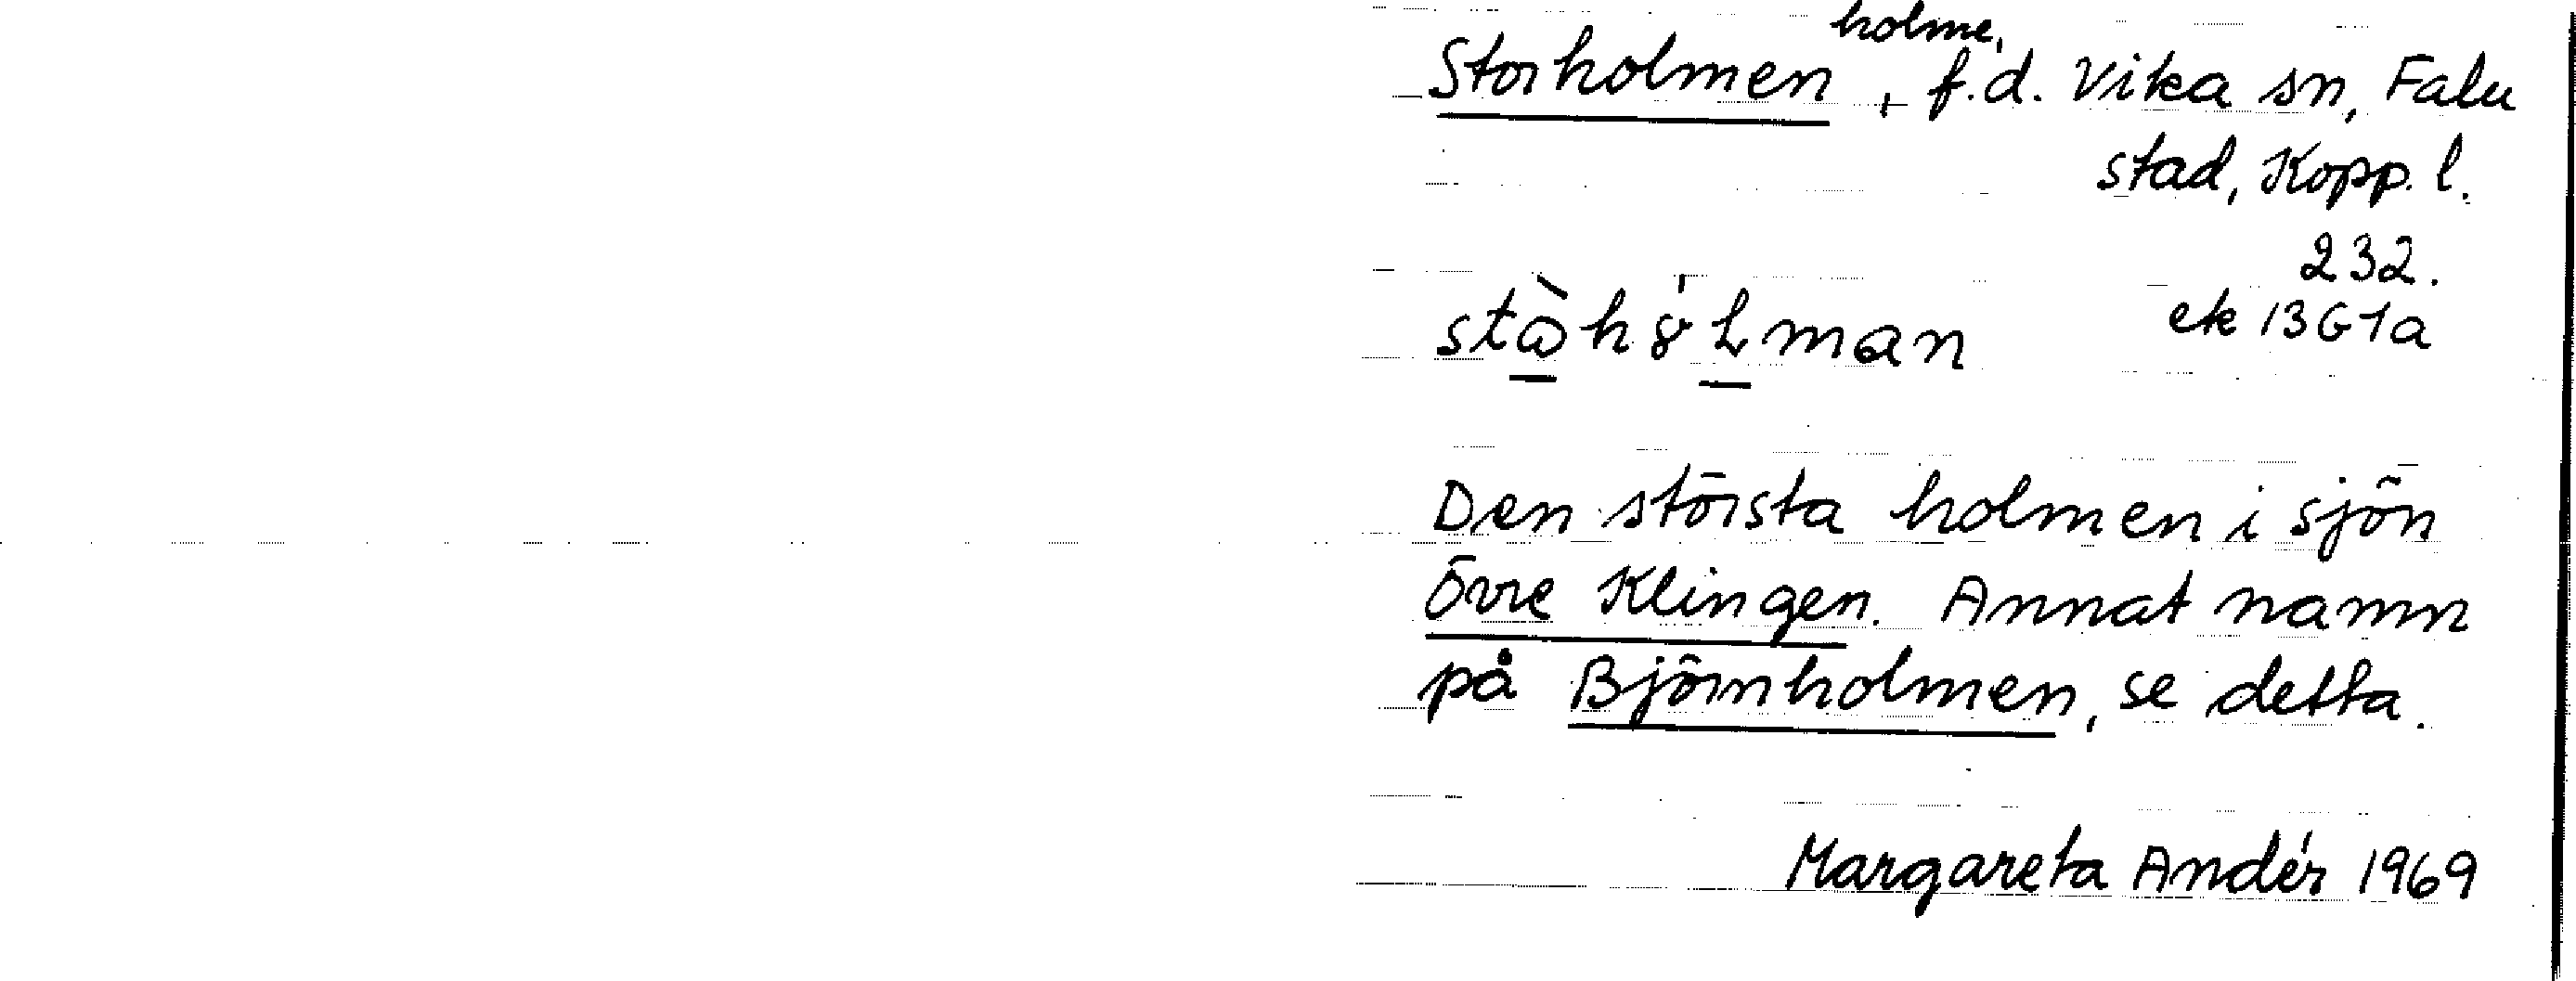 holme,
Storholmen, f.d. Vika sn, Falu
stad, Kopp. l.
232.
ek 13G1a
Den största holmen i sjön
Övre Klingen. Annat namn
på Björnholmen, se detta.
Margareta Andér 1969